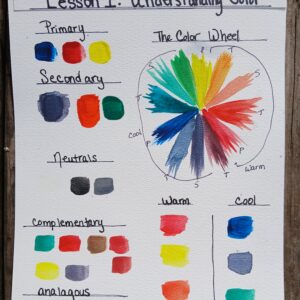 Lesson 1: Understanding Color
Primary
The Color Wheel
P
T
T
S
S
Secondary
T
T
Cool
P
P
Neutrals
T
T
Warm
S
T
S
Complementary
Warm
Cool
analagous